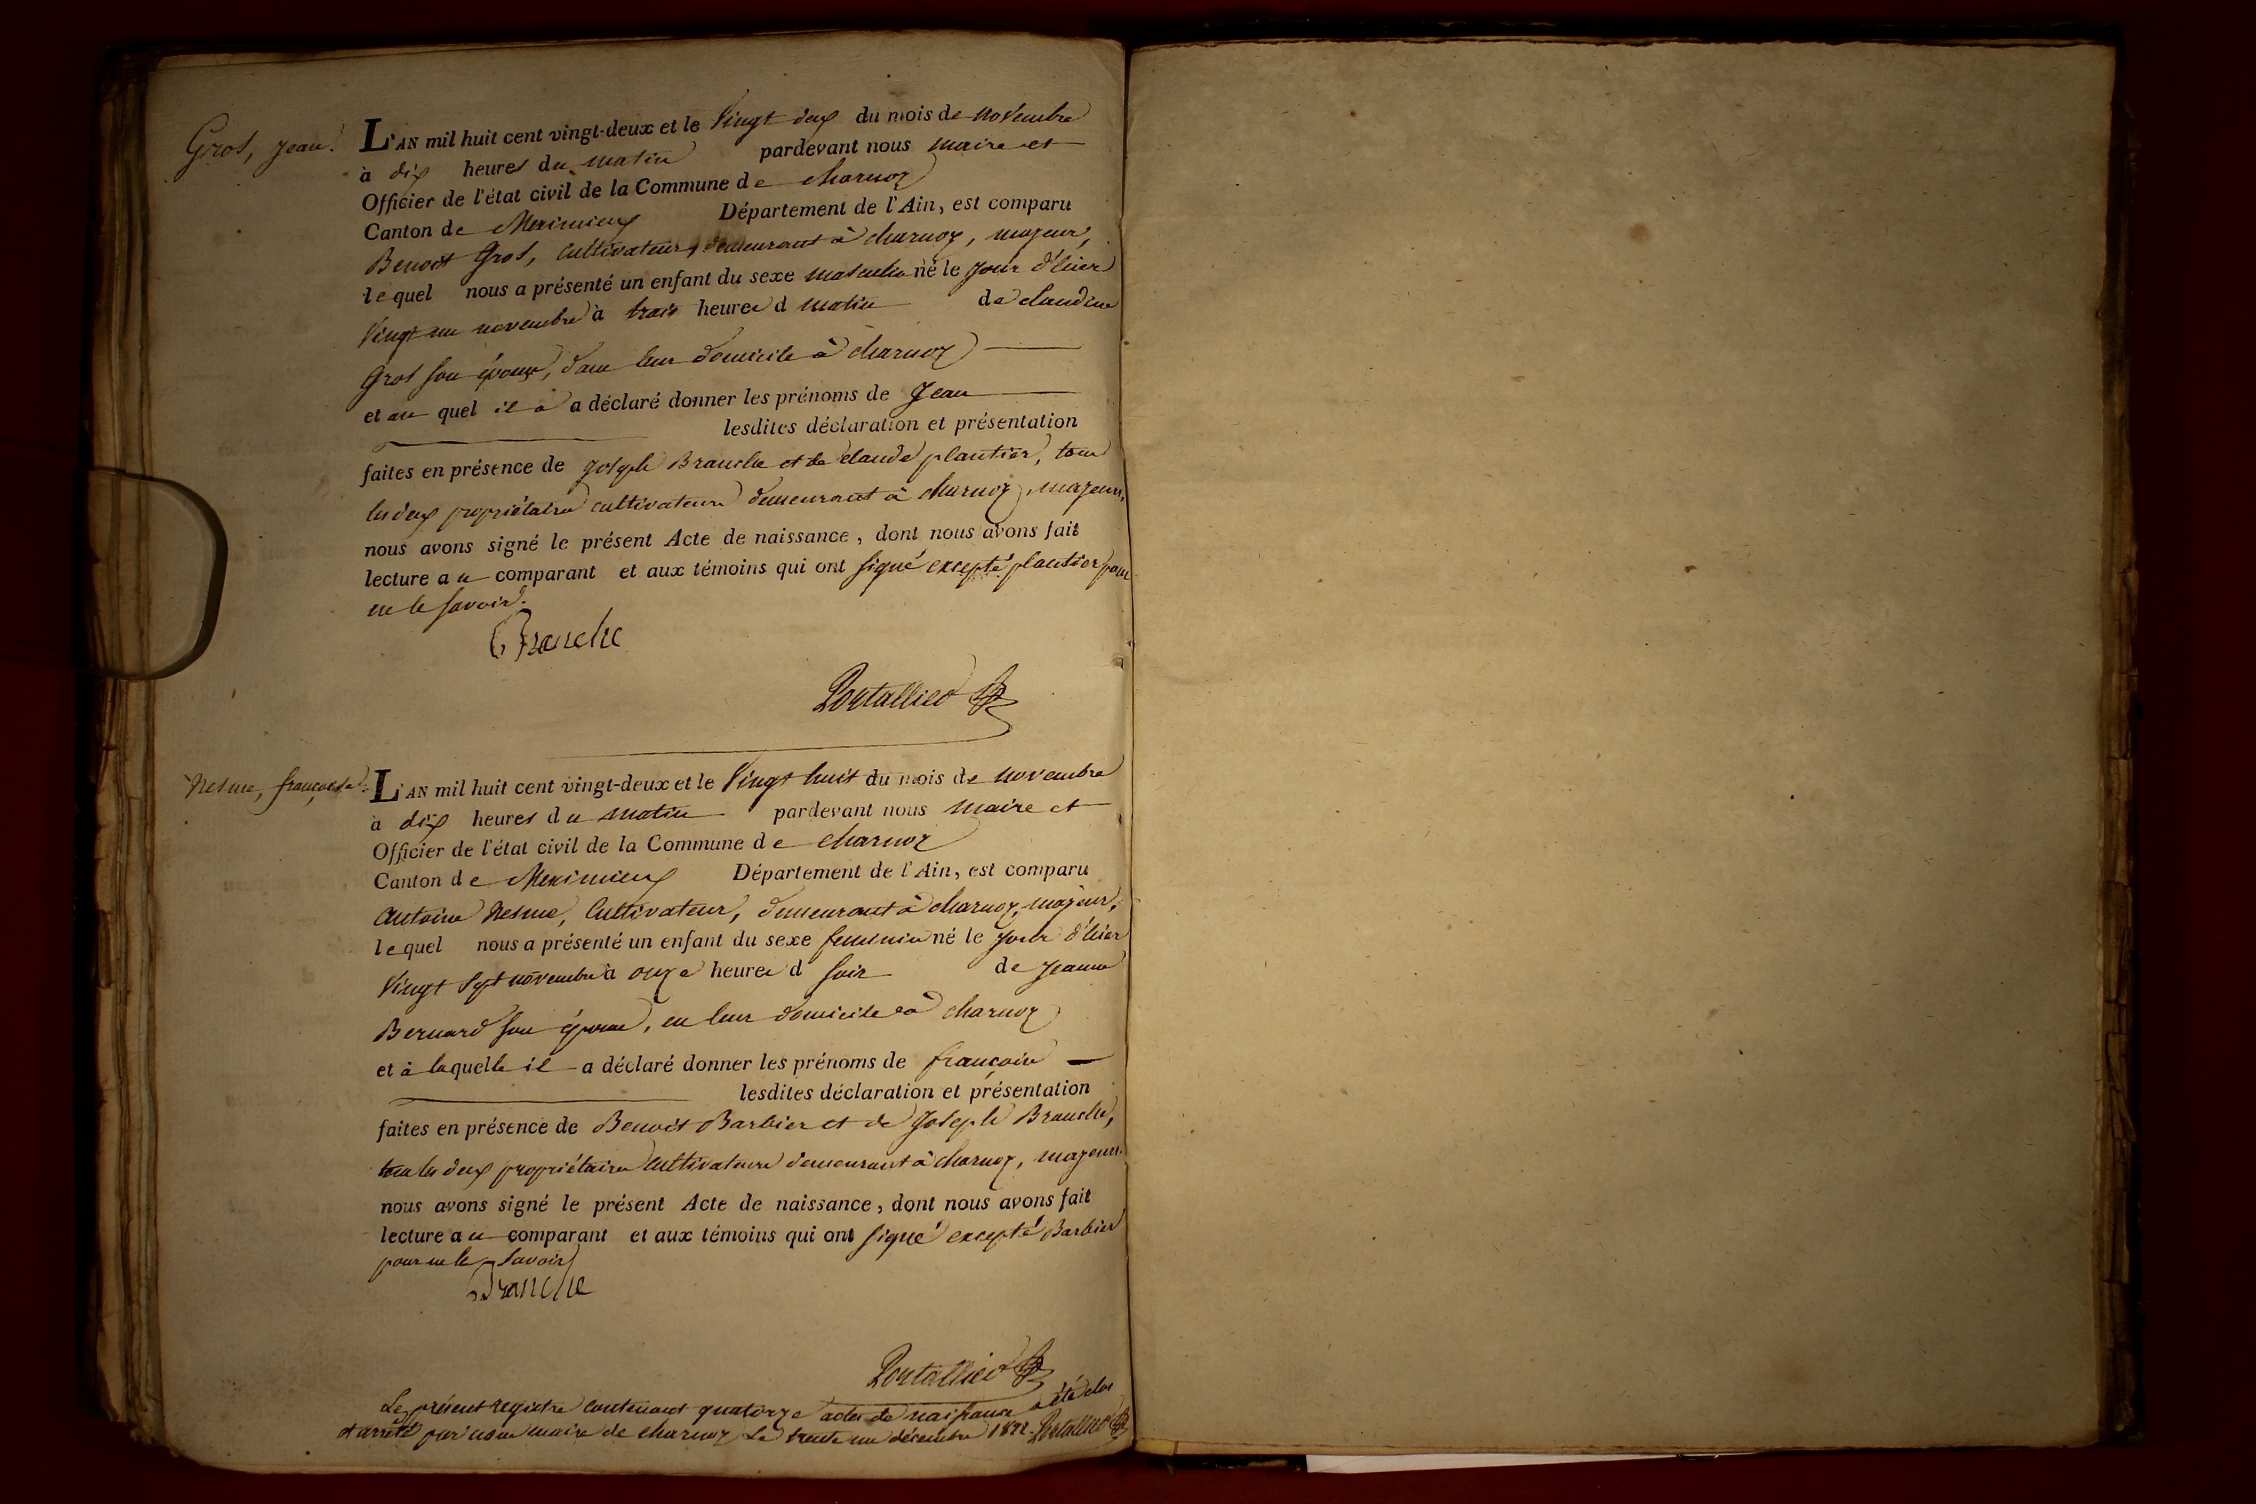 Gros, Jean.
L'AN mil huit cent vingt-deux et le Vingt deux du mois de novembre
à dix heures du matin pardevant nous maire et
Officier de l'état civil de la Commune de charnoz
Canton de Meximieux Département de l'Ain, est comparu
Benoit Gros, cultivateur, demeurant à charnoz, majeur,
lequel nous a présenté un enfant du sexe masculin né le jour d'hier
Vingt un novembre à trois heures d matin de claudine
Gros son épouse, dans leur domicile à charnoz
et au quel il a a déclaré donner les prénoms de Jean
lesdites déclaration et présentation
faites en présence de Joseph Branche et de claude plantier, tous
les deux propriétaires cultivateurs demeurant à charnoz, majeurs,
nous avons signé le présent Acte de naissance, dont nous avons fait
lecture au comparant et aux témoins qui ont signé excepté plantier pour
ne le savoir.
Branche
Portallier
Nesme, françoise.
L'AN mil huit cent vingt-deux et le Vingt huit du mois de novembre
à dix heures du matin pardevant nous maire et
Officier de l'état civil de la Commune de charnoz
Canton de Meximieux Département de l'Ain, est comparu
antoine Nesme, Cultivateur, demeurant à charnoz, majeur,
lequel nous a présenté un enfant du sexe feminin né le jour d'hier
Vingt sept novembre à onze heures d soir de jeanne
Bernard son épouse, en leur domicile à charnoz
et à laquelle il a déclaré donner les prénoms de françoise
lesdites déclaration et présentation
faites en présence de Benoit Barbier et de Joseph Branche,
tous les deux propriétaires cultivateurs demeurant à charnoz, majeurs.
nous avons signé le présent Acte de naissance, dont nous avons fait
lecture au comparant et aux témoins qui ont signé excepté Barbier
pour ne le savoir
Branche
Portallier
Le présent registre contenant quatorze actes de naissance a été clos
et arrêté par nous maire de charnoz le trente un décembre 1822. Portallier